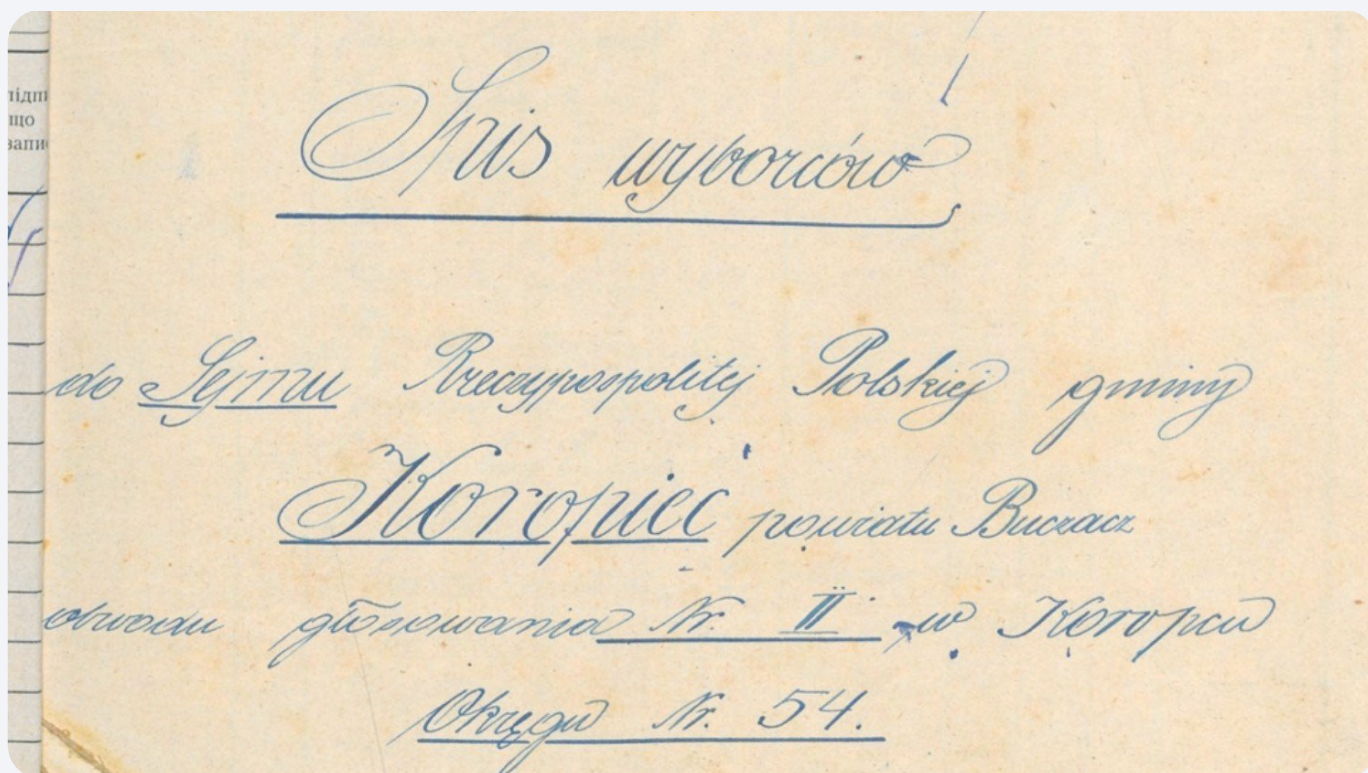 підпи
що
запи
Spis wyborców
do Sejmu Rzeczypospolitej Polskiej gminy
Koropiec powiatu Buczacz
obwodu głosowania Nr. II. w Koropcu
Okręgu Nr. 54.